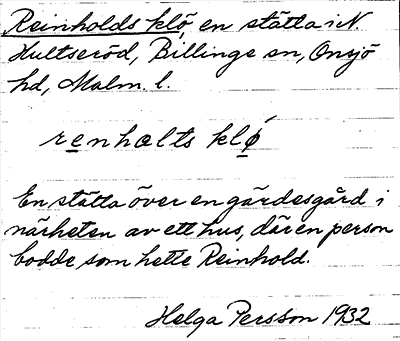 Reinholds klö, en stätta i N.
Hultseröd, Billinge sn, Onsjö
hd, Malm. l.
renhalts klǿ
En stätta över en gärdesgård i
närheten av ett hus, där en person
bodde som hette Reinhold.
Helga Persson 1932